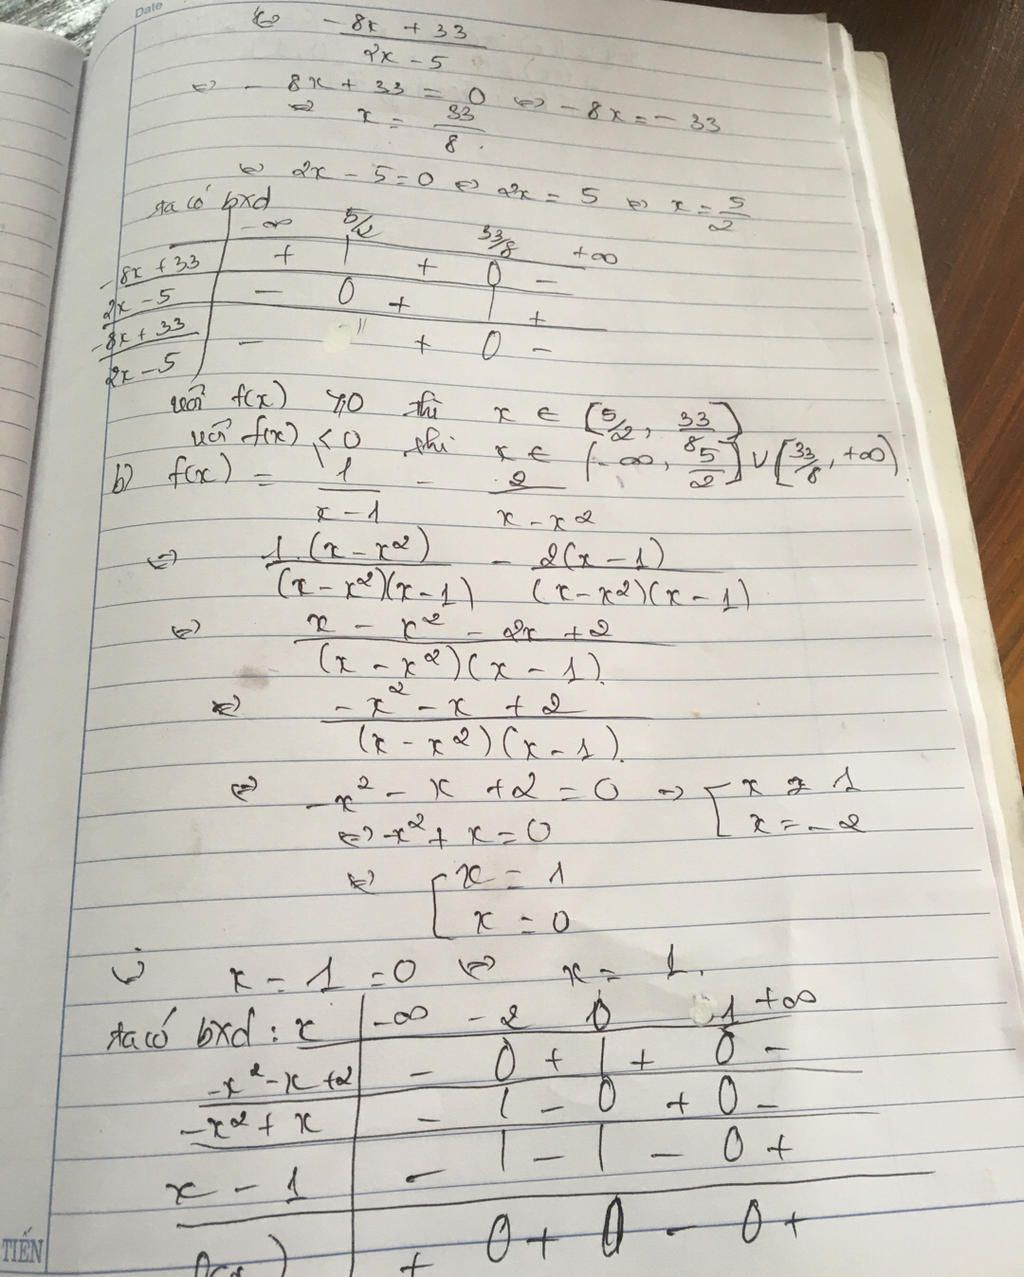 Date
⇔ -8x + 33 / 2x - 5
⇔ -8x + 33 = 0 ⇔ -8x = -33
⇔ x = 33/8.
⇔ 2x - 5 = 0 ⇔ 2x = 5 ⇔ x = 5/2
ta có bxd
-∞ 5/2 33/8 +∞
-8x + 33 + | + 0 -
2x - 5 - 0 + | +
-8x + 33 / 2x - 5 - || + 0 -
với f(x) ≥ 0 thì x ∈ [5/2, 33/8]
với f(x) < 0 thì x ∈ (-∞, 5/2] ∪ [33/8, +∞)
b) f(x) = 1/(x - 1) - 2/(x - x²)
⇔ 1.(x - x²)/(x - x²)(x - 1) - 2(x - 1)/(x - x²)(x - 1)
⇔ x - x² - 2x + 2 / (x - x²)(x - 1).
⇔ -x² - x + 2 / (x - x²)(x - 1).
⇔ -x² - x + 2 = 0 ⇒ [ x = 1
x = -2
⇔ -x² + x = 0
⇔ [ x = 1
x = 0
x - 1 = 0 ⇔ x = 1.
ta có bxd : x -∞ -2 0 1 +∞
-x² - x + 2 - 0 + | + 0 -
-x² + x - | - 0 + 0 -
x - 1 - | - | - 0 +
f(x) + 0 + 0 - 0 +
TIẾN